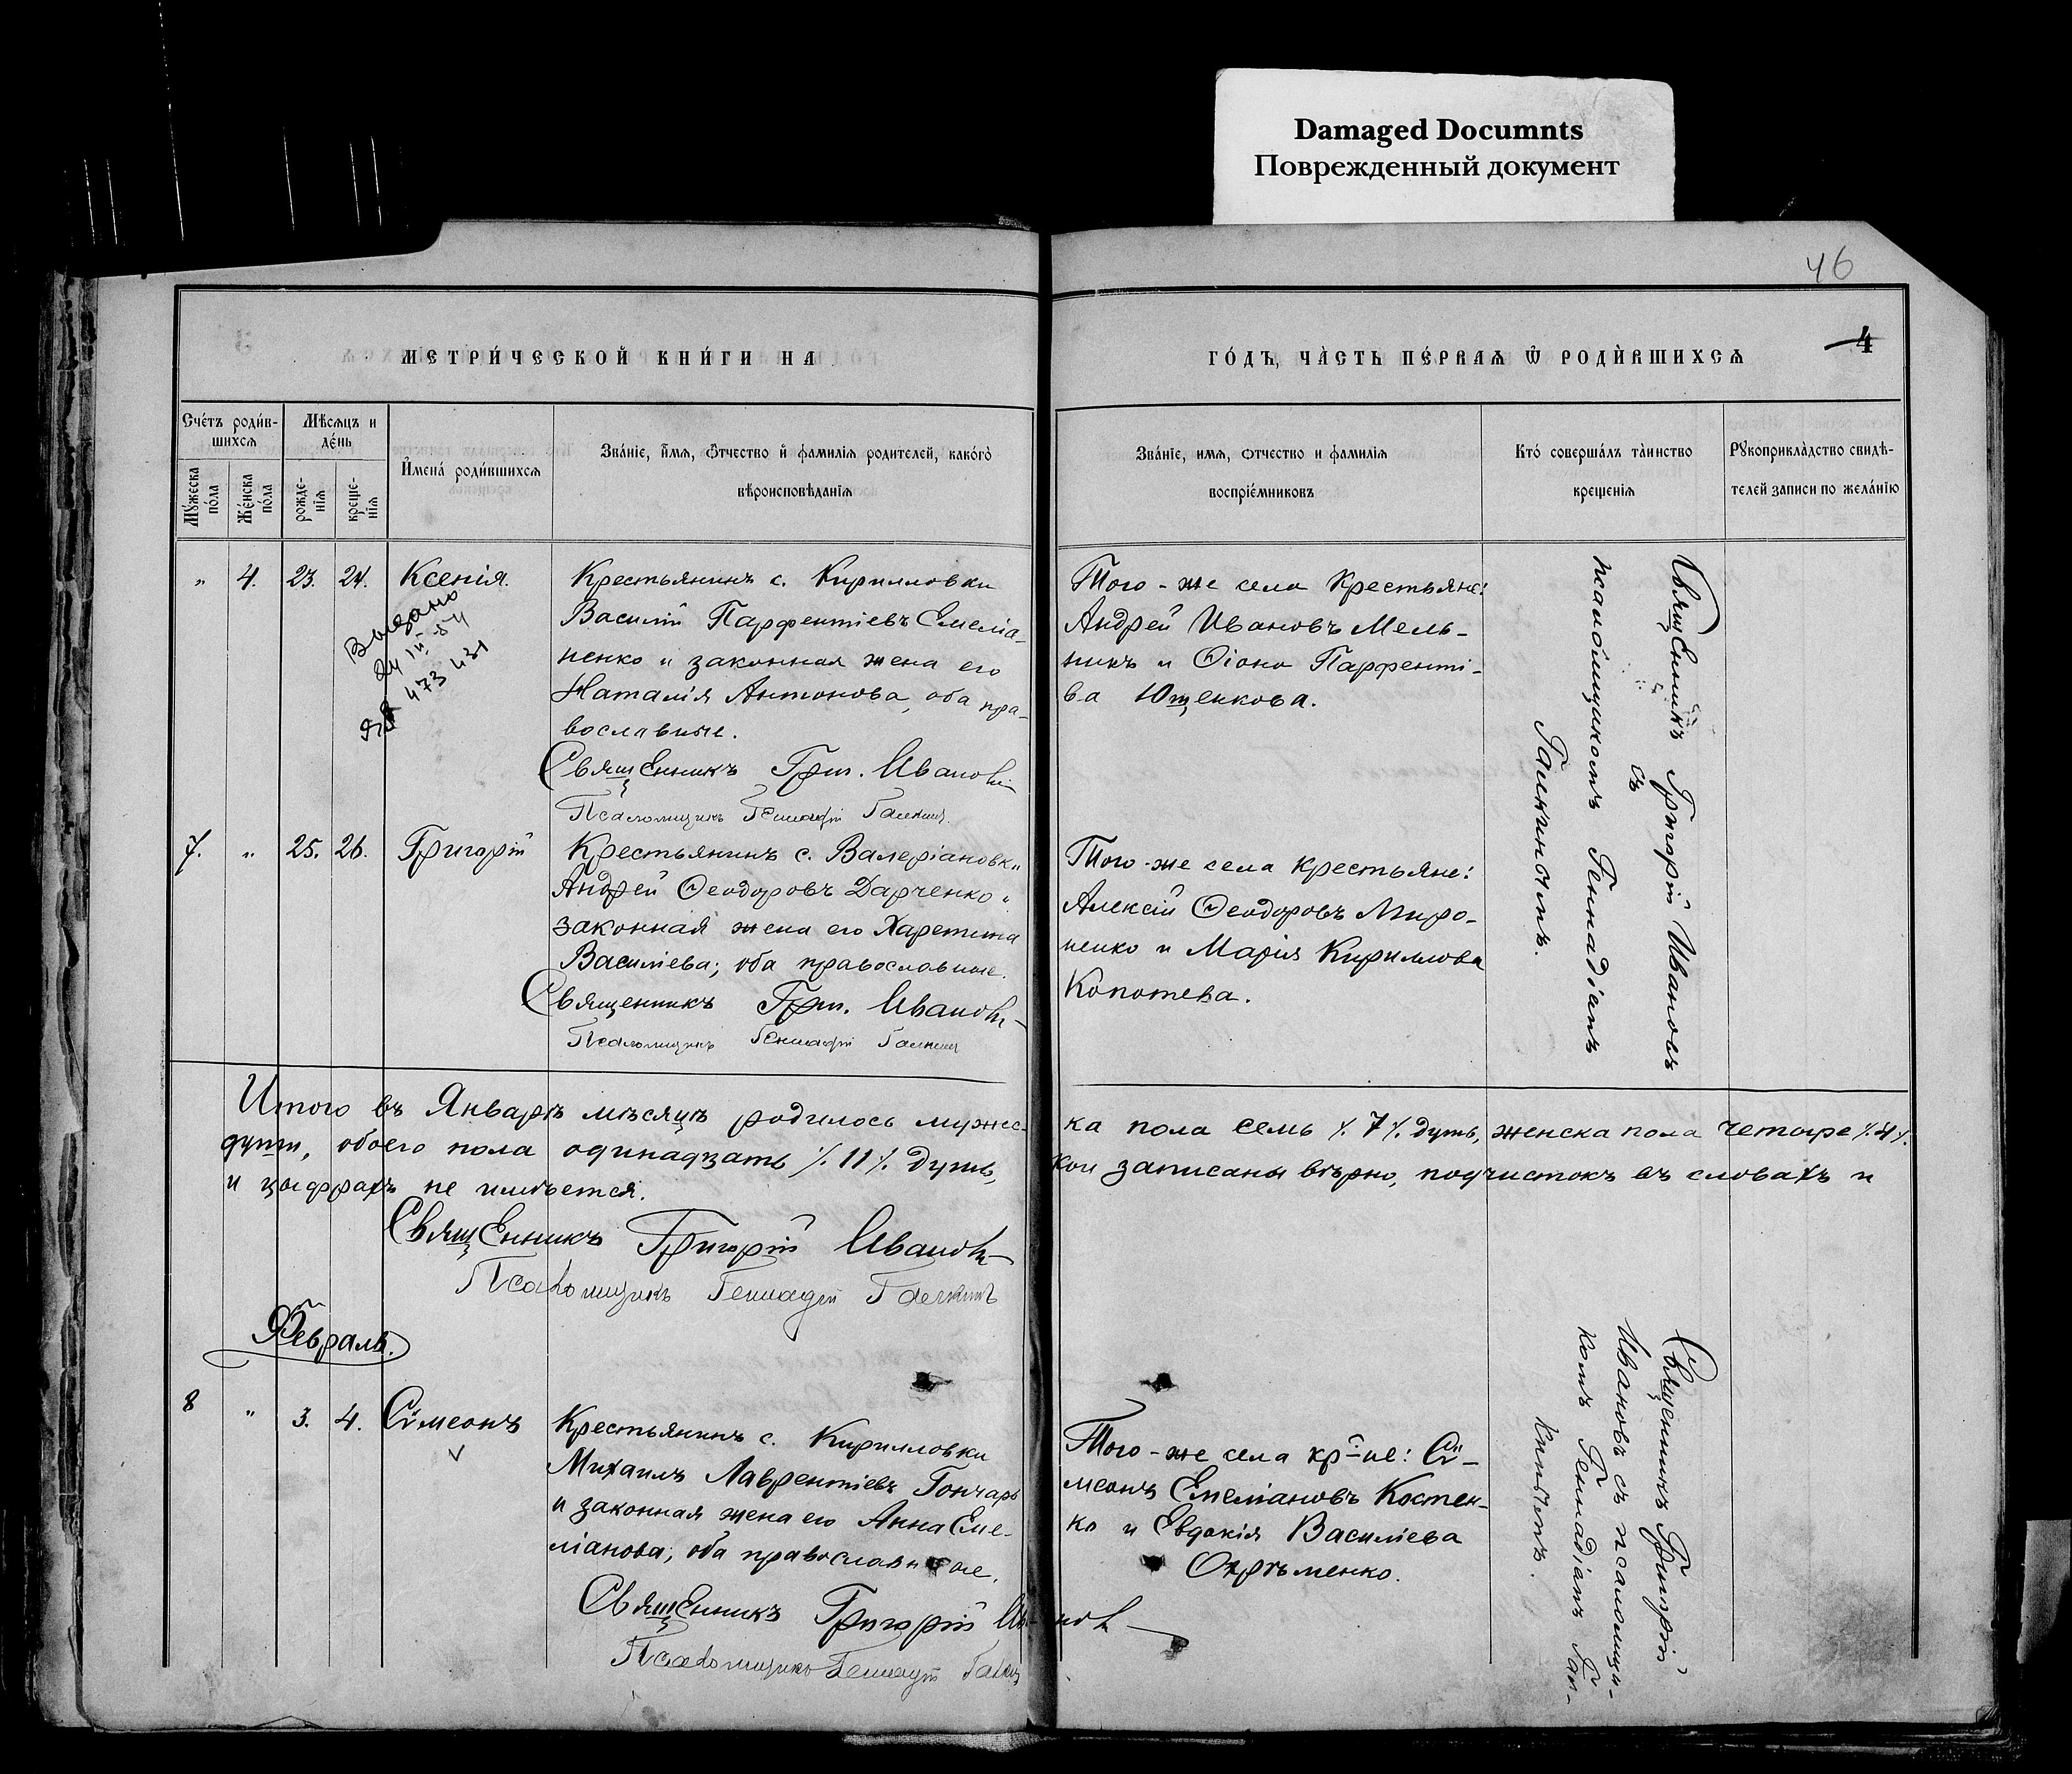 Damaged Documnts
Поврежденный документ
46
4
МЕТРИ́ЧЕСКОЙ КНИ́ГИ НА
ГО́ДЪ, ЧА̀СТЬ ПЕ́РВАѦ Ѿ РОДИ́ВШИХСѦ
Сче́тъ роди́в-
шихсѧ
Мѣ́сѧцъ и
де́нь
Мꙋ́жеска
по́ла
Же́нска
по́ла
рожде-
нїѧ
креще-
нїѧ
И҆мена̀ роди́вшихсѧ
Зва́нїе, и҆́мѧ, ѻ҆́тчество и҆ фамилїѧ родителей, како́гѡ
вѣроисповѣ́данїѧ
Зва́нїе, имѧ, ѻтчество и фамилїѧ
воспрїе́мниковъ
Кто́ соверша́лъ та̀инство
крещенїѧ
Рꙋкоприкла̀дство свидѣ́-
телей записи по жела́нїю
" 4. 23. 24. Ксенія.
Крестьянинъ с. Кирилловки
Василій Парфентіевъ Емеліа-
ненко и законная жена его
Наталія Антонова, оба пра-
вославные.
Священникъ Григ. Ивановъ
Псаломщикъ Геннадій Галкинъ
Выдано
24 III 54
ЯД 473 431
Того-же села крестьяне:
Андрей Ивановъ Мель-
никъ и Ѳіона Парфенті-
ва Ющенкова.
Священникъ Григорій Ивановъ
съ
псаломщикомъ Геннадіемъ
Галкинымъ.
7. " 25. 26. Григорій
Крестьянинъ с. Валеріановки
Андрей Ѳеодоровъ Дарченко и
законная жена его Харетина
Василіева; оба православные.
Священникъ Григ. Ивановъ
Псаломщикъ Геннадій Галкинъ
Того-же села крестьяне:
Алексій Ѳеодоровъ Миро-
ненко и Марія Кириллова
Копотева.
Итого въ Январѣ мѣсяцѣ родилось мужес-
ка пола семь ./.7./. душъ, женска пола четыре ./.4./.
души, обоего пола одинадзать ./.11./. душъ,
кои записаны вѣрно, подчистокъ въ словахъ и
и цыфрахъ не имѣется.
Священникъ Григорій Ивановъ
Псаломщикъ Геннадій Галкинъ
Февраль.
8 " 3. 4. Сѷмеонъ
Крестьянинъ с. Кирилловки
Михаилъ Лаврентіевъ Гончарь
и законная жена его Анна Еме-
ліанова; оба православные.
Священникъ Григорій Ивановъ
Псаломщикъ Геннадій Галкин
Того-же села кр-не: Сѷ-
меонъ Емеліановъ Костен-
ко и Евдокія Василіева
Охрѣменко.
Священникъ Григорій
Ивановъ съ псаломщи-
комъ Геннадіемъ Гал-
кинымъ.